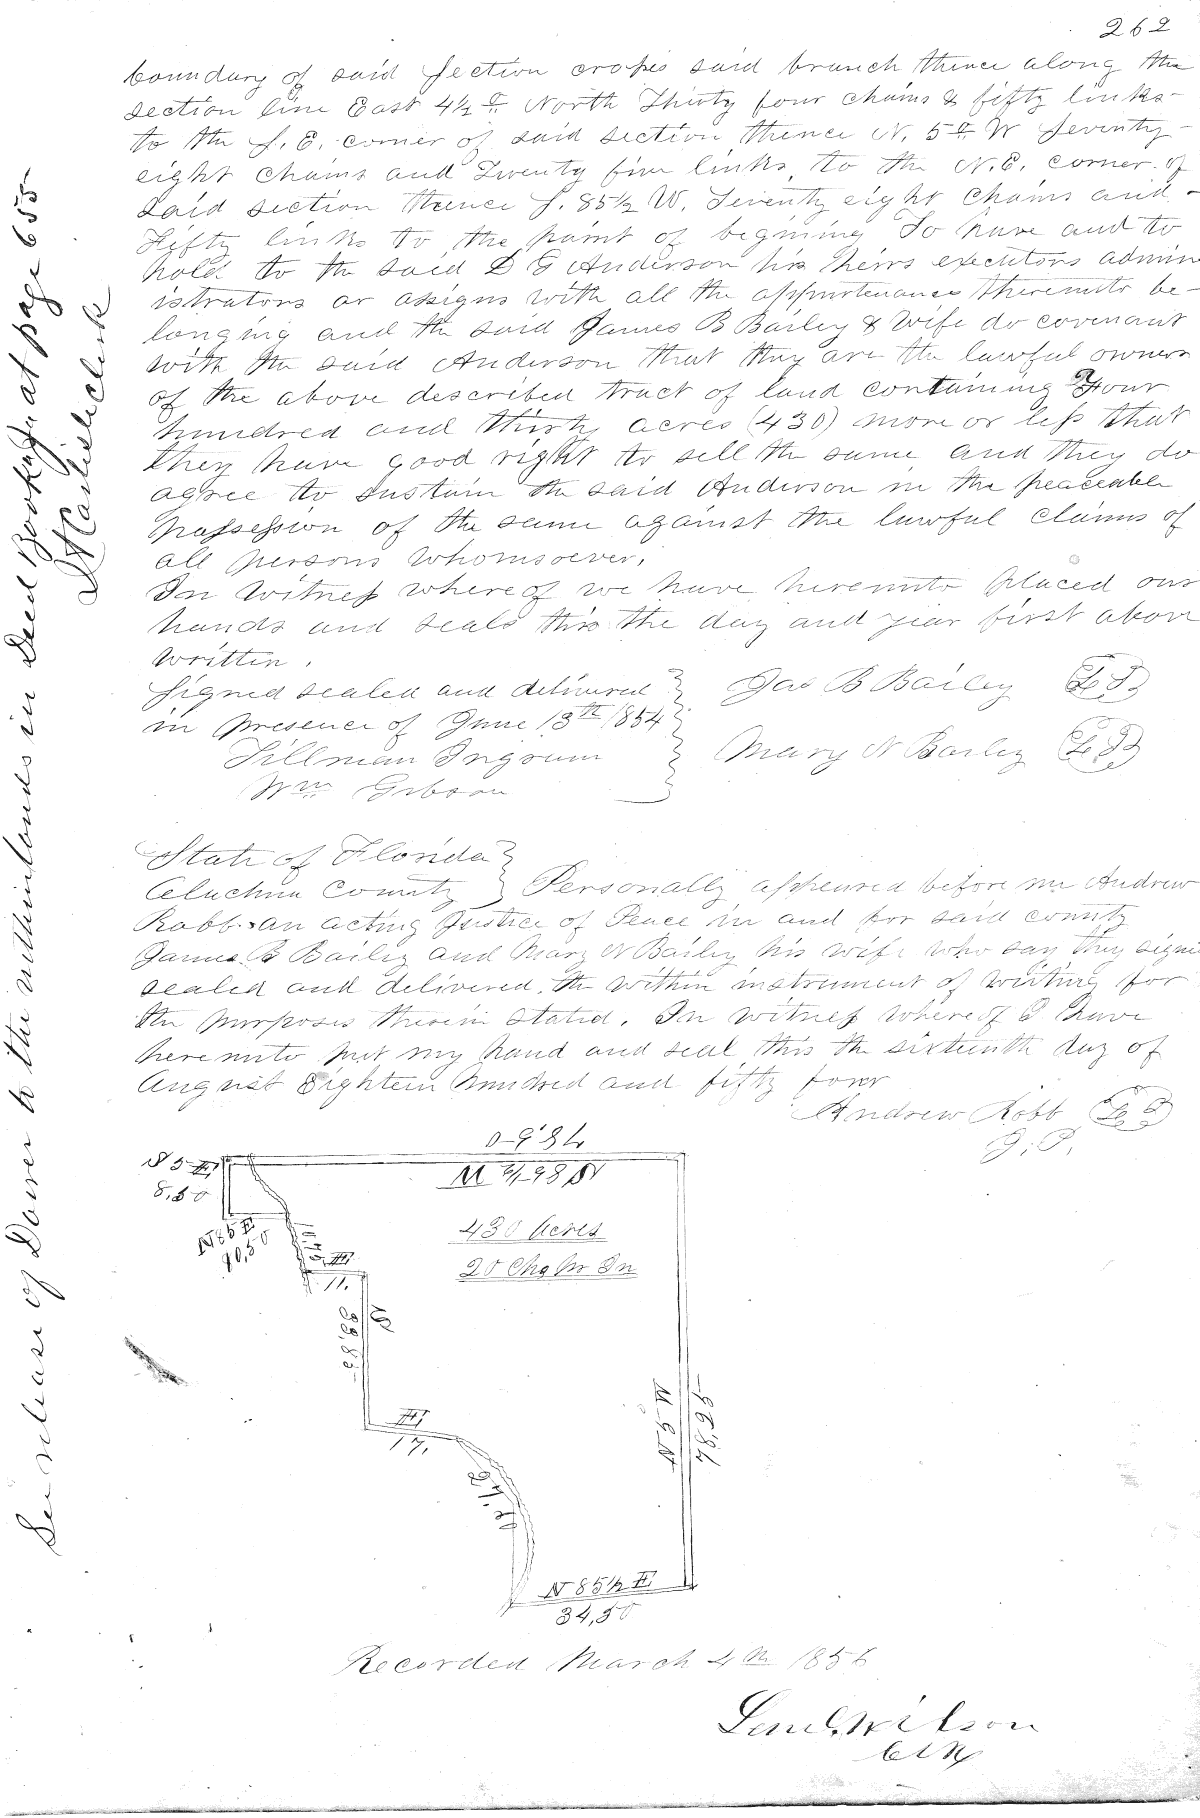 262
boundary of said Section crosses said branch thence along the
section line East 4½° North Thirty four chains & fifty links
to the S. E. corner of said section thence N. 5° W Seventy-
eight chains and Twenty five links, to the N.E. corner of
said section thence S. 85½ W. Seventy eight chains and
Fifty links to the point of begining To have and to
hold to the said D G Anderson his heirs executors admin
istrators or assigns with all the appurtenances thereunto be-
longing and the said James B Bailey & Wife do covenant
with the said Anderson that they are the lawful owners
of the above described tract of land containing Four
hundred and thirty acres (430) more or less that
they have good right to sell the same and they do
agree to sustain the said Anderson in the peaceable
possession of the same against the lawful claims of
all persons whomsoever.
In Witness whereof we have hereunto placed our
hands and seals this the day and year first above
written.
Signed sealed and delivered
in presence of June 13th 1854
Tillman Ingram
Wm Gibson
Jas B Bailey L S
Mary N Bailey L S
State of Florida
Aluchua County Personally appeared before me Andrew
Robb an acting Justice of Peace in and for said county
James B Bailey and Mary N Bailey his wife who say they signe
sealed and delivered the within instrument of writing for
the purposes therein stated. In witness whereof I have
hereunto put my hand and seal this the sixteenth day of
August Eighteen hundred and fifty four
Andrew Robb L S
J. P.
78,50
N 86½ W
N 5 E
8,50
N 85 E
40,50
430 Acres
20 Chs Pr In
E
11.
S
33,85
E
17.
N 5 W
78,25
N 85½ E
34,50
Recorded March 4th 1856
Lem Wilson
Clk
See release of Dower to the within lands in Deed Book at page 655
Carlisle clerk